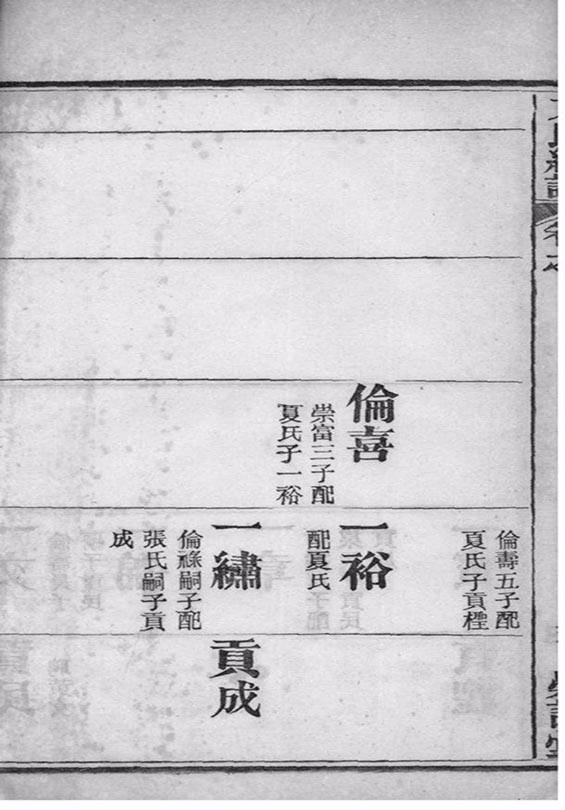 倫壽五子配
夏氏子貢樫
倫喜
崇富三子配
夏氏子一裕
一裕
配夏氏
一繡
倫祿嗣子配
張氏嗣子貢
成
貢成